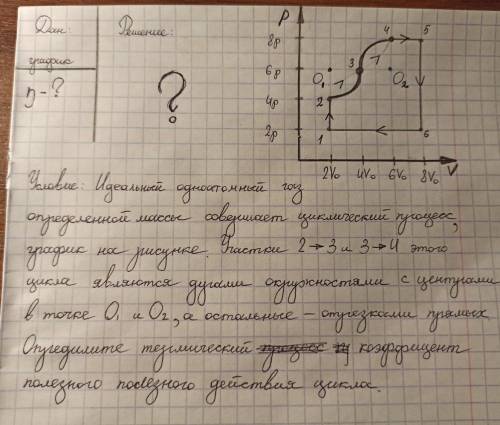 Дано: Решение:
график
η - ?
?
P
8p
6p
4p
2p
1 2 3 4 5 6
O₁ O₂
2V₀ 4V₀ 6V₀ 8V₀ V
Условие: Идеальный одноатомный газ
определенной массы совершает циклический процесс,
график на рисунке. Участки 2→3 и 3→4 этого
цикла являются дугами окружностями с центрами
в точке O₁ и O₂, а остальные – отрезками прямых
Определите термический процесс η коэффициент
полезного полезного действия цикла.